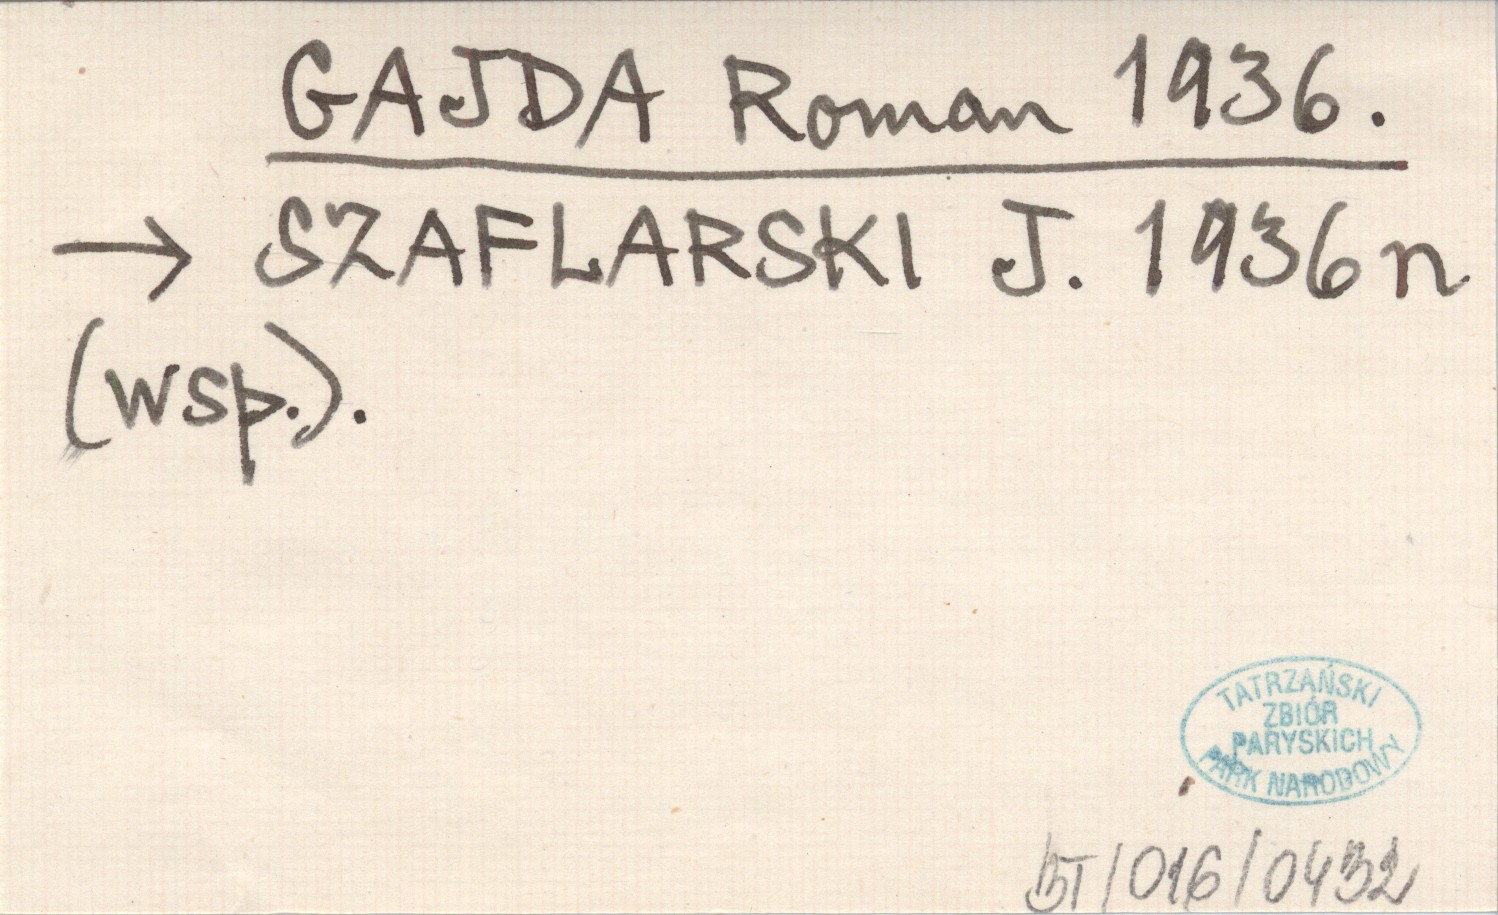 GAJDA Roman 1936.
→ SZAFLARSKI J. 1936n
(wsp.).
TATRZAŃSKI
ZBIÓR
PARYSKICH
PARK NARODOWY
BT/016/0432